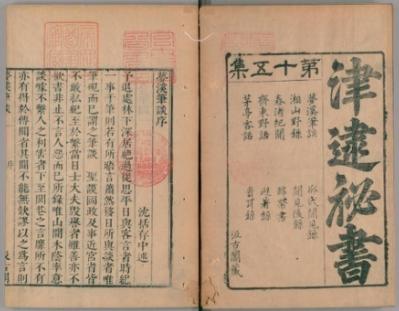 津逮祕書
第十五集
夢溪筆談
湘山野錄
春渚紀聞
齊東野語
茅亭客話
邵氏聞見錄
聞見後錄
汲古閣藏
夢溪筆談序
沈括存中述
予退處林下深居絕過從思平日與客言者時紀
一事于筆則若有所晤言蕭然移日所與談者唯
筆硯而已謂之筆談 聖謨國政及事近宮省皆
不敢私紀至於繫當日士大夫毀譽者雖善亦不
欲書非止不言人惡而已所錄唯山間木蔭率意
談噱不繫人之利害者下至閭巷之言靡所不有
亦有得於傳聞者其間不能無缺謬以之為言則
夢溪筆談
序
汲古閣